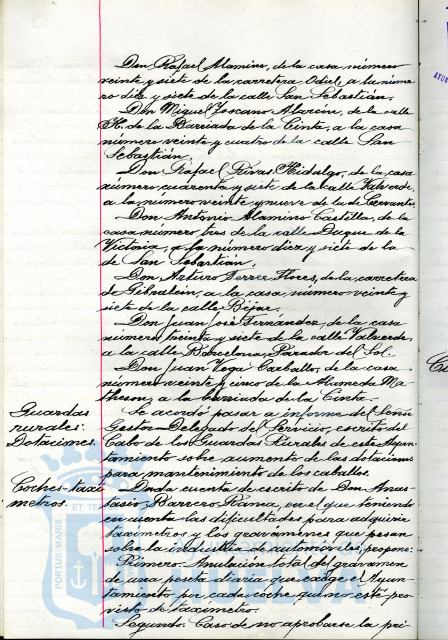 Don Rafael Alamino, de la casa número
veinte y siete de la carretera Odiel, a la núme-
ro diez y siete de la calle San Sebastián.
Don Miguel Toscano Alarcón, de la calle
H. de la Barriada de la Cinta, a la casa
número veinte y cuatro de la calle San
Sebastián.
Don Rafael Rivas Hidalgo, de la casa
número cuarenta y siete de la calle Valverde,
a la número veinte y nueve de la de Cervantes.
Don Antonio Alamino Castilla, de la
casa número tres de la calle Duque de la
Victoria, a la número diez y siete de la
de San Sebastián.
Don Arturo Ferrer Flores, de la carretera
de Gibraleón, a la casa número veinte y
siete de la calle Béjar.
Don Juan José Fernández, de la casa
número treinta y siete de la calle Valverde,
a la calle Barcelona, Parador del Sol.
Don Juan Vega Carballo, de la casa
número veinte y cinco de la Alameda Ma-
theson, a la barriada de la Cinta.
Guardas
rurales:
Dotaciones.
Se acordó pasar a informe del Señor
Gestor Delegado del Servicio, escrito del
Cabo de los Guardas Rurales de este Ayun-
tamiento sobre aumento de las dotaciones
para mantenimiento de los caballos.
Coches-taxí-
metros.
Dada cuenta de escrito de Don Anas-
tasio Barrero Rama, en el que teniendo
en cuenta las dificultades para adquirir
taxímetros y los gravámenes que pesan
sobre la industria de automóviles, propone:
Primero. Anulación total del gravamen
de una peseta diaria que exige el Ayun-
tamiento por cada coche que no esté pro-
visto de taxímetro.
Segundo. Caso de no aprobarse la pri-
PORTUS MARIS
ET TE
HUELVA